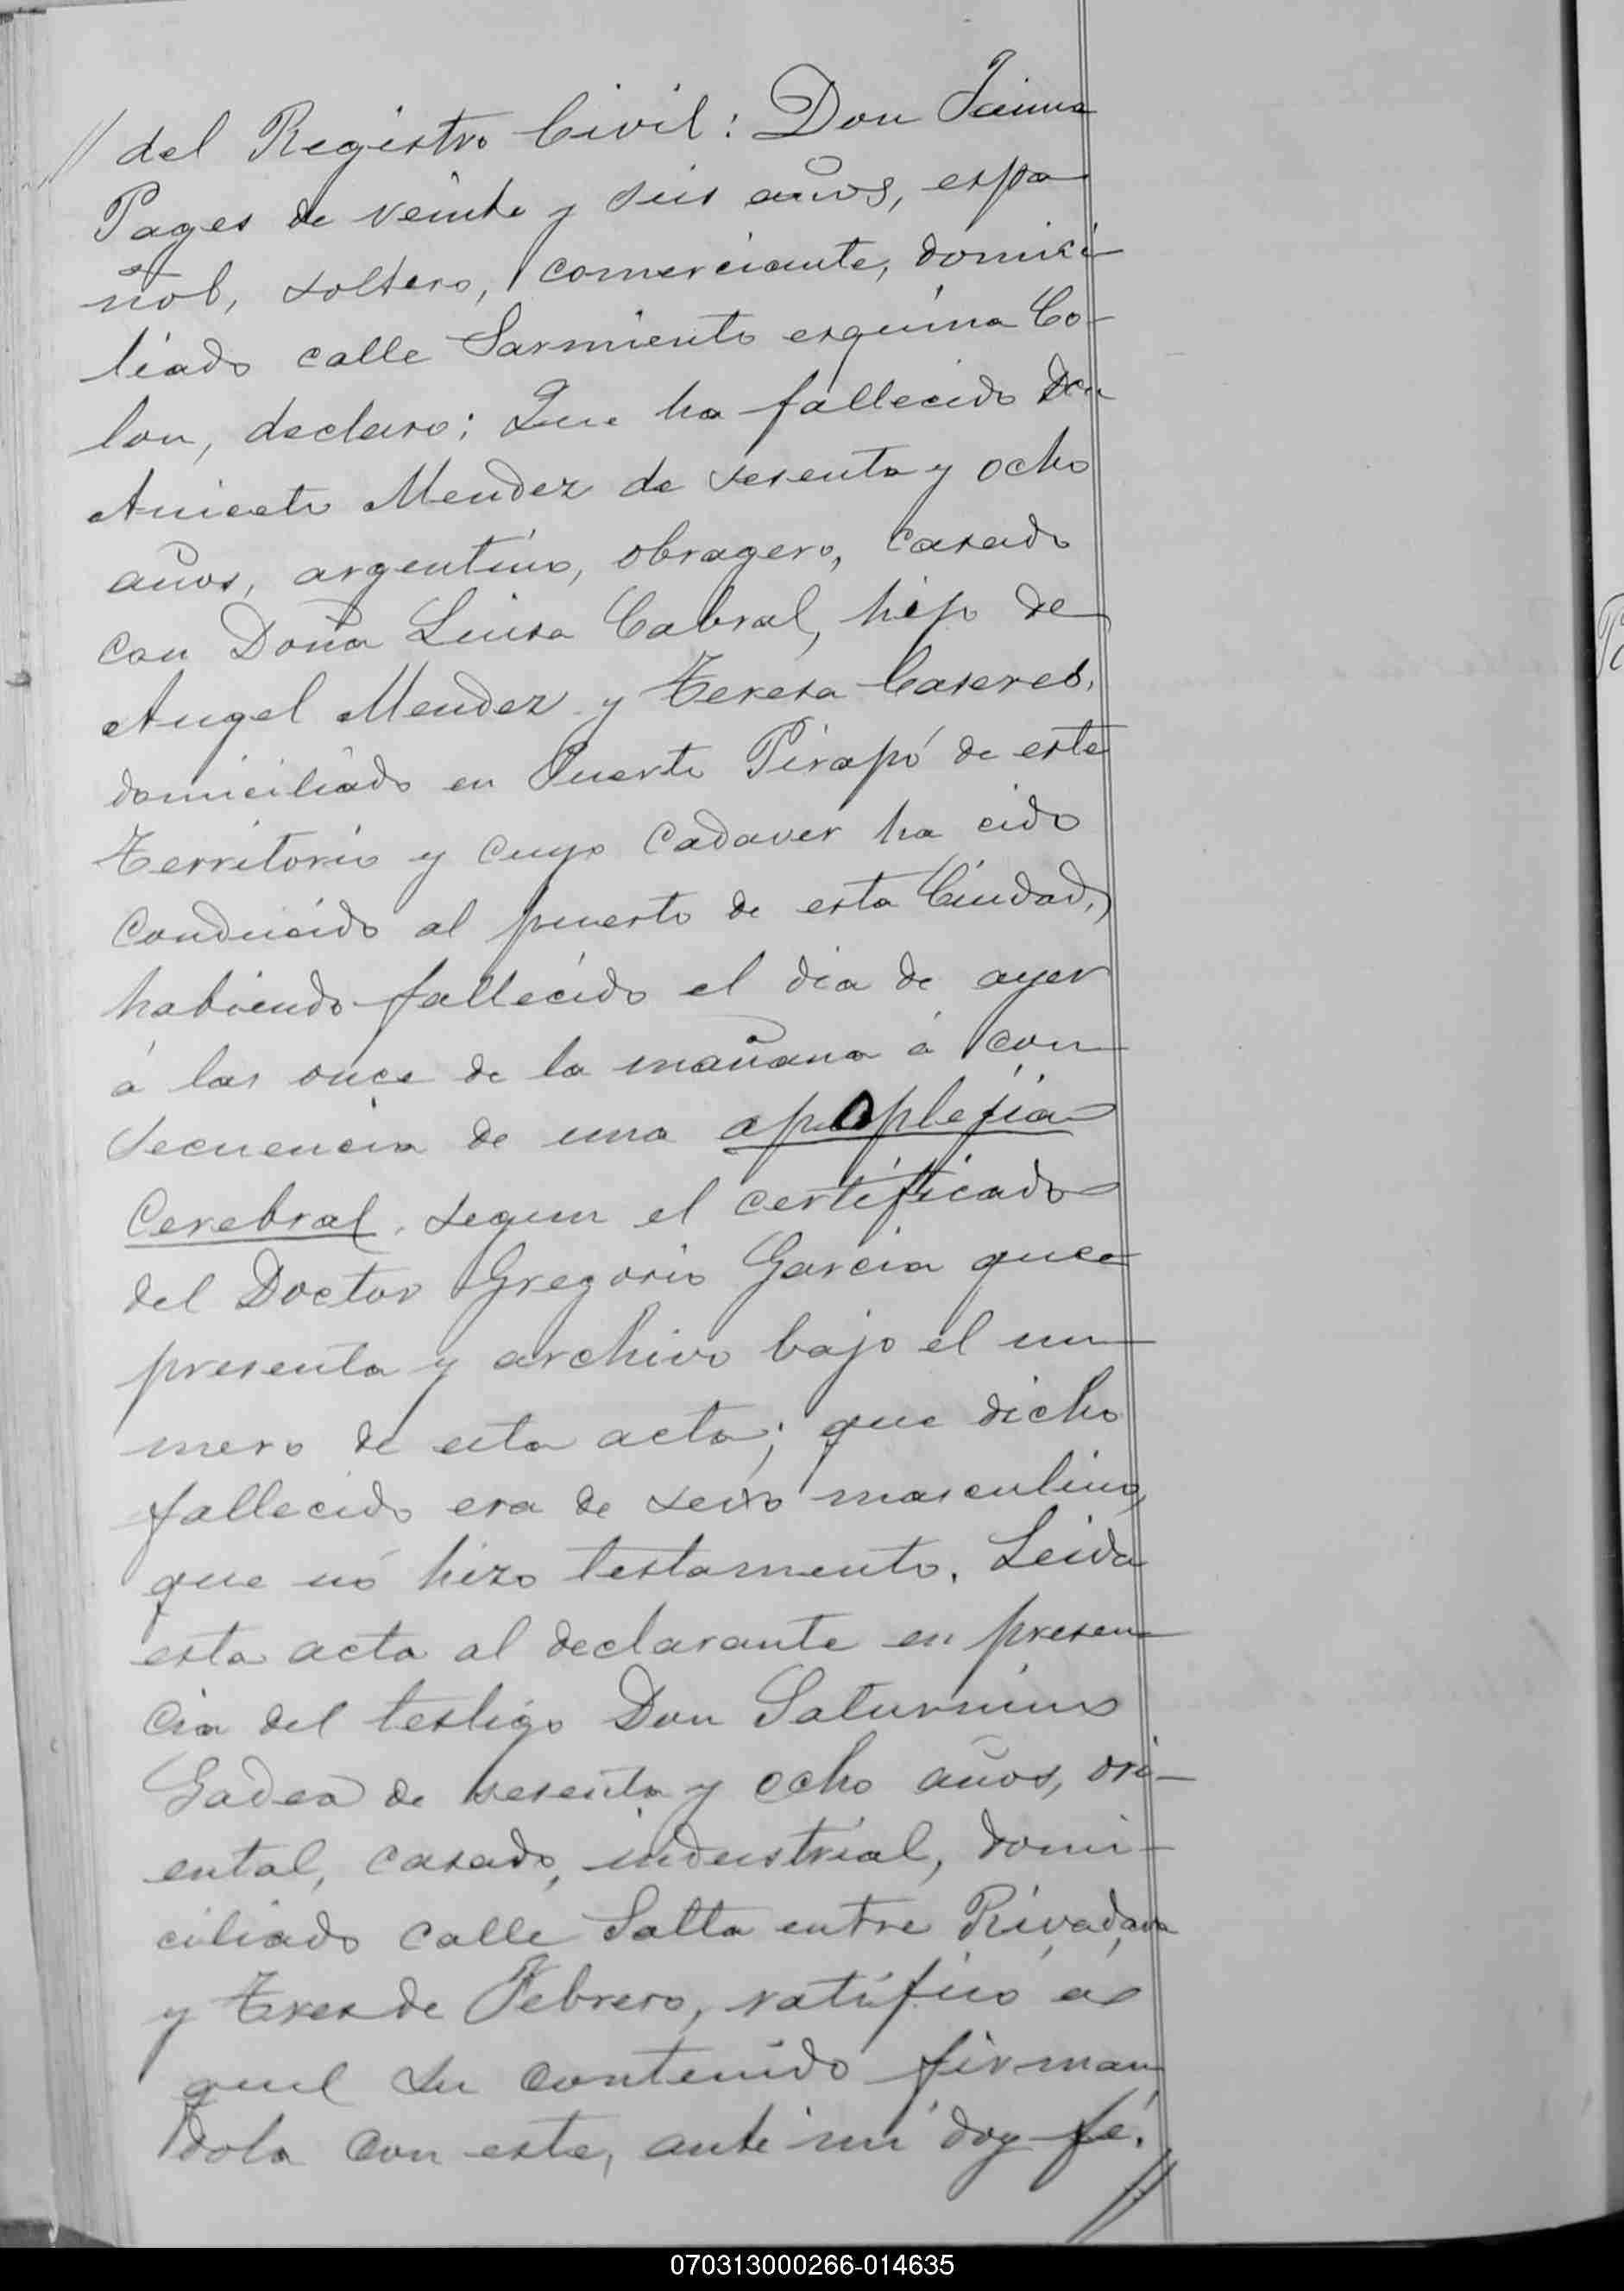 // del Registro Civil: Don Jaime
Pages de veinte y seis años, espa
ñol, soltero, comerciante, domici-
liado calle Sarmiento esquina Co-
lon, declaro; Que ha fallecido Don
Aniceto Mendez de sesenta y ocho
años, argentino, obragero, casado
con Doña Luisa Cabral, hijo de
Angel Mendez y Teresa Caseres,
domiciliado en Puerto Pirapó de este
Territorio y cuyo cadaver ha cido
conducido al puerto de esta Ciudad,
habiendo fallecido el dia de ayer
á las once de la mañana á con
secuencia de una apoplejia
Cerebral, segun el certificado
del Doctor Gregorio Garcia que
presenta y archivo bajo el nu
mero de esta acta; que dicho
fallecido era de sexo masculino,
que nó hizo testamento. Leida
esta acta al declarante en presen
cia del testigo Don Saturnino
Gadea de sesenta y ocho años, ori-
ental, casado, industrial, domi-
ciliado calle Salta entre Rivadavia
y Tres de Febrero, ratificó a
quel su contenido firman
dola con este, ante mi doy fé. //
070313000266-014635